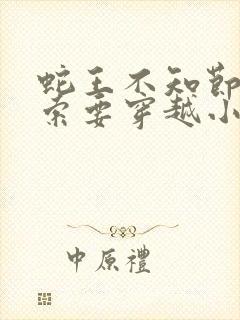 蛇王不知節
索要穿越小
中原禮